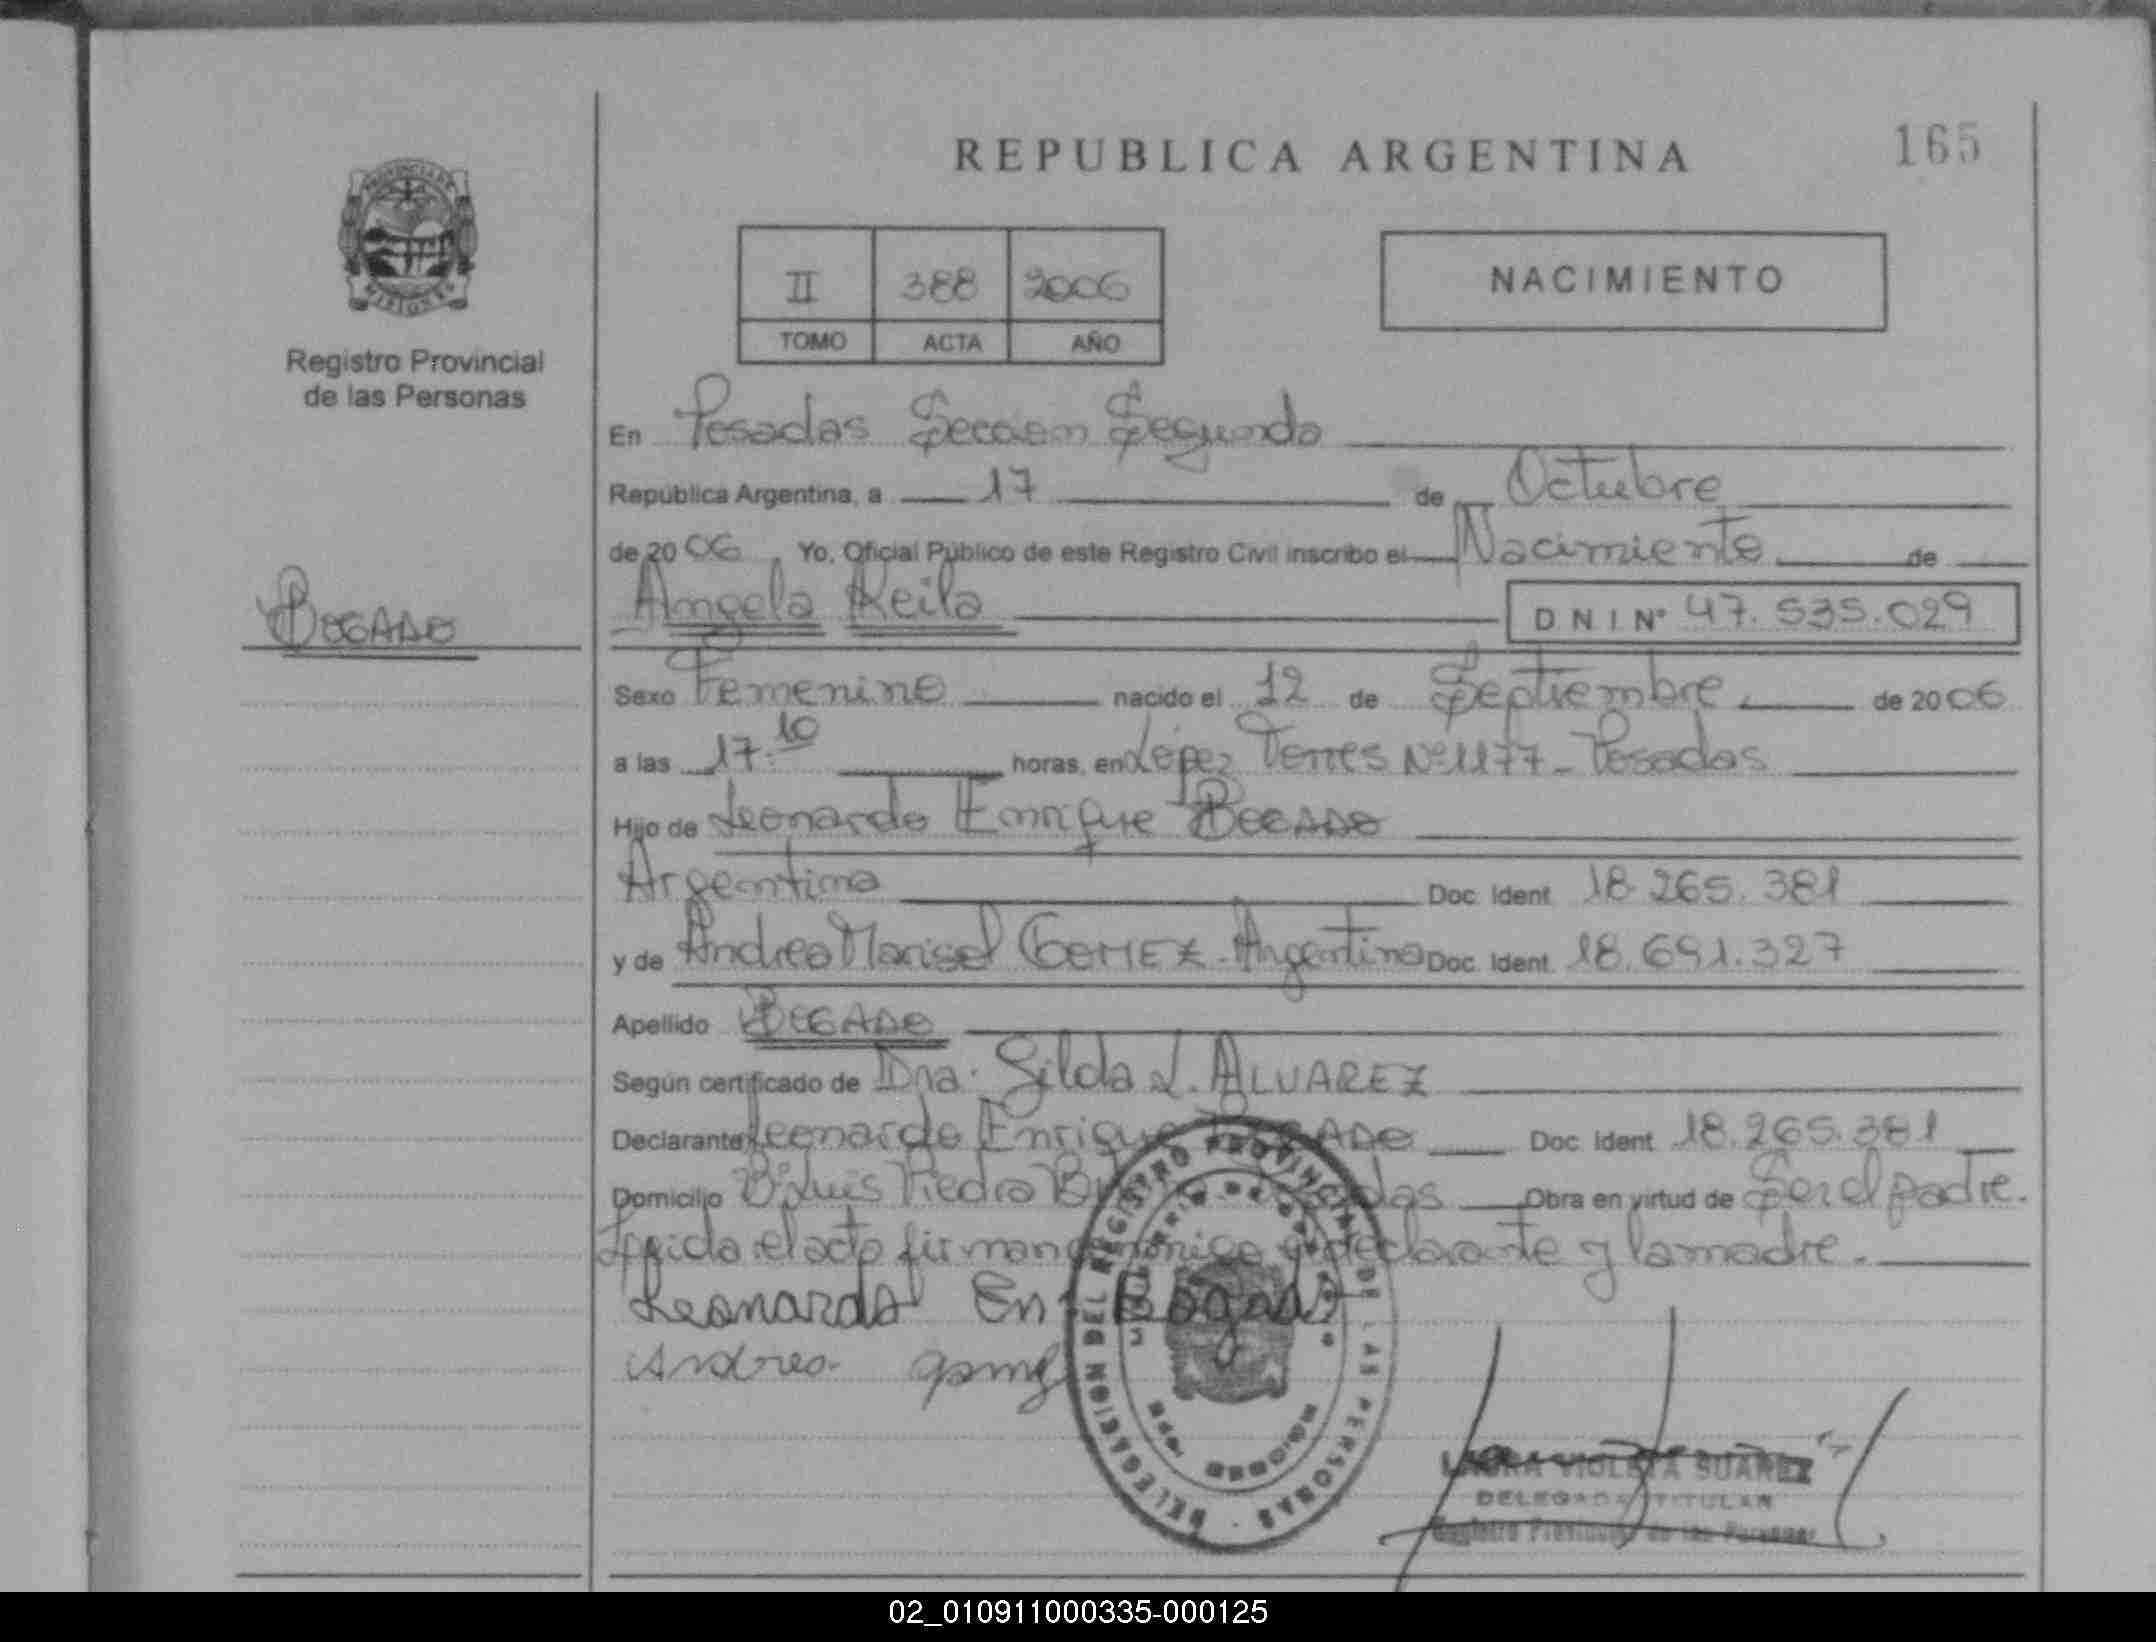 REPUBLICA ARGENTINA
165
PROVINCIA DE
MISIONES
Registro Provincial
de las Personas
II 388 2006
TOMO ACTA AÑO
NACIMIENTO
En Posadas Seccion Segunda
República Argentina, a 17 de Octubre
de 2006, Yo, Oficial Público de este Registro Civil inscribo el Nacimiento de
BOGADO
Angela Keila DNI Nº 47.535.029
Sexo Femenino nacido el 12 de Septiembre de 2006
a las 17.10 horas, en López Torres Nº 1177 - Posadas
Hijo de Leonardo Enrique BOGADO
Argentina Doc. Ident. 18.265.381
y de Andrea Marisel GOMEZ - Argentina Doc. Ident. 18.691.327
Apellido BOGADO
Según certificado de Dra. Gilda L. ALVAREZ
Declarante Leonardo Enrique BOGADO Doc. Ident. 18.265.381
Domicilio Bº Luis Piedra Obra en virtud de Ser el padre.
Leida el acta firman conmigo el declarante y la madre.
Leonardo En Bogado
Andrea
DELEGACION DEL REGISTRO PROVINCIAL DE LAS PERSONAS
MISIONES
LAURA VIOLETA SUAREZ
DELEGADA TITULAR
Registro Provincial de las Personas
02_010911000335-000125